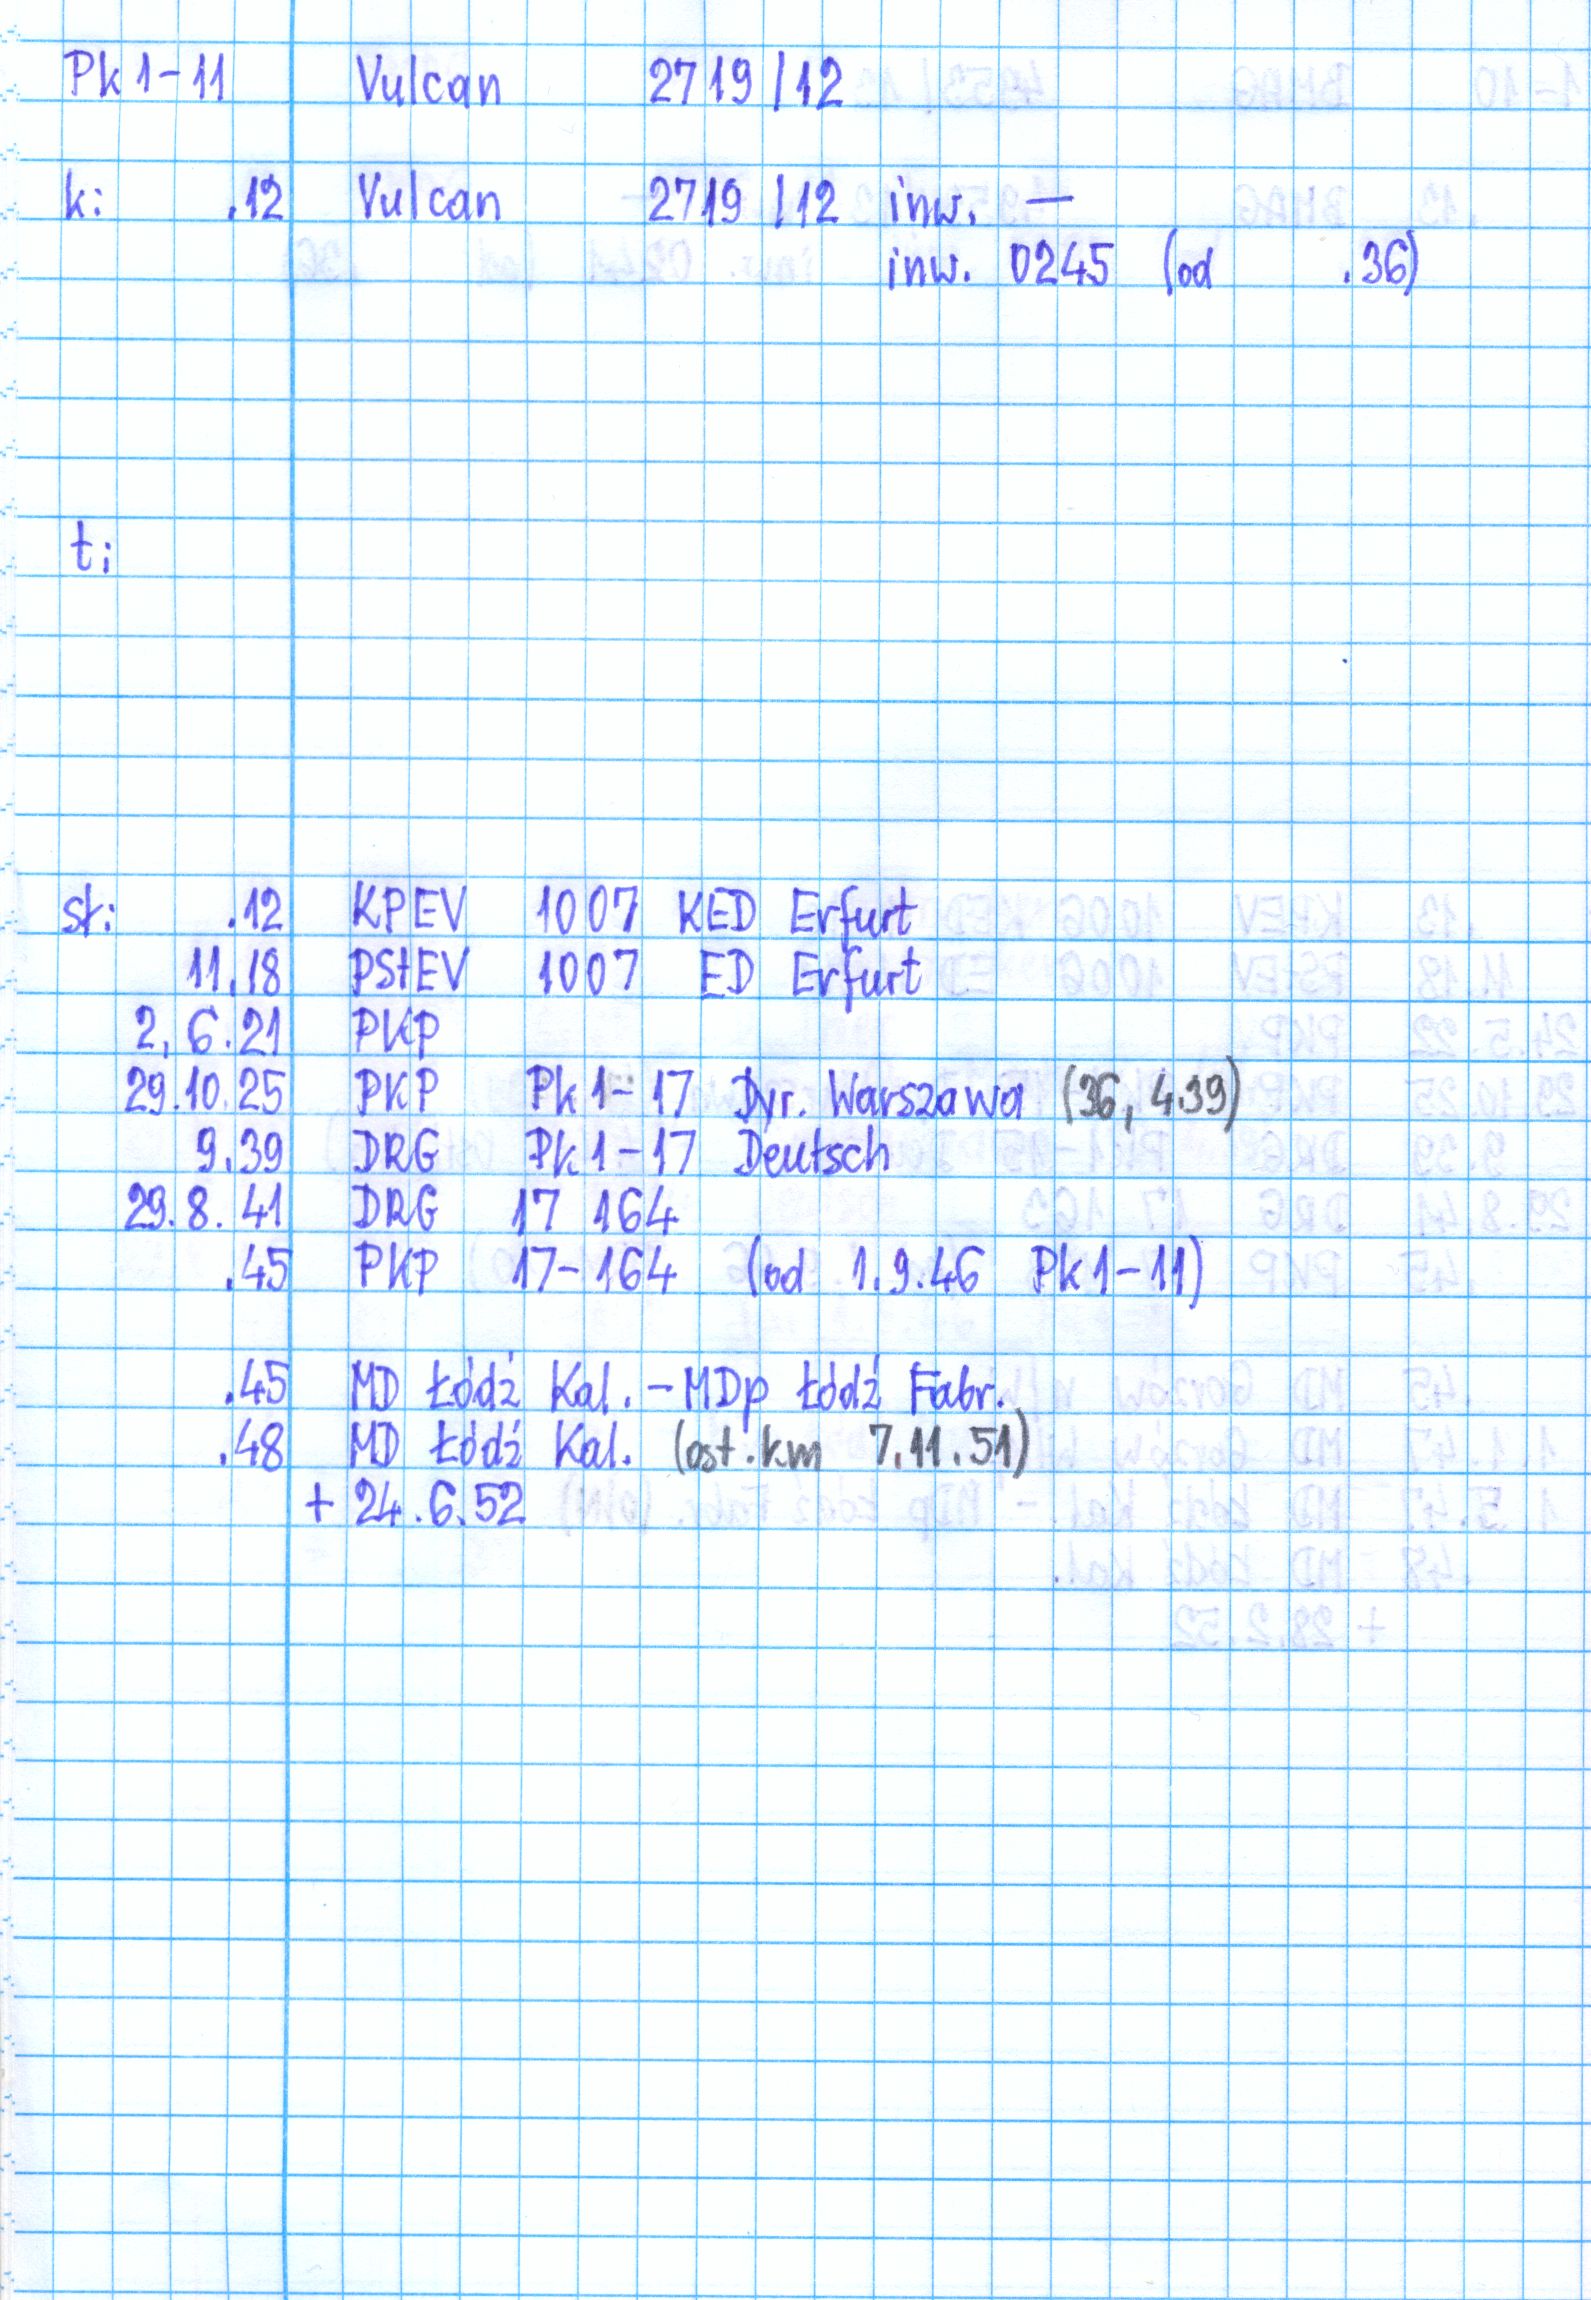 Pk1-11 Vulcan 2719/12
k: .12 Vulcan 2719/12 inw. —
inw. 0245 (od .36)
t:
st: .12 KPEV 1007 KED Erfurt
11.18 PStEV 1007 ED Erfurt
2.6.21 PKP
29.10.25 PKP Pk1-17 Dyr. Warszawa (36, 4.39)
9.39 DRG Pk1-17 Deutsch
29.8.41 DRG 17 164
.45 PKP 17-164 (od 1.9.46 Pk1-11)
.45 MD Łódź Kal. - MDp Łódź Fabr.
.48 MD Łódź Kal. (ost. km 7.11.51)
+ 24.6.52